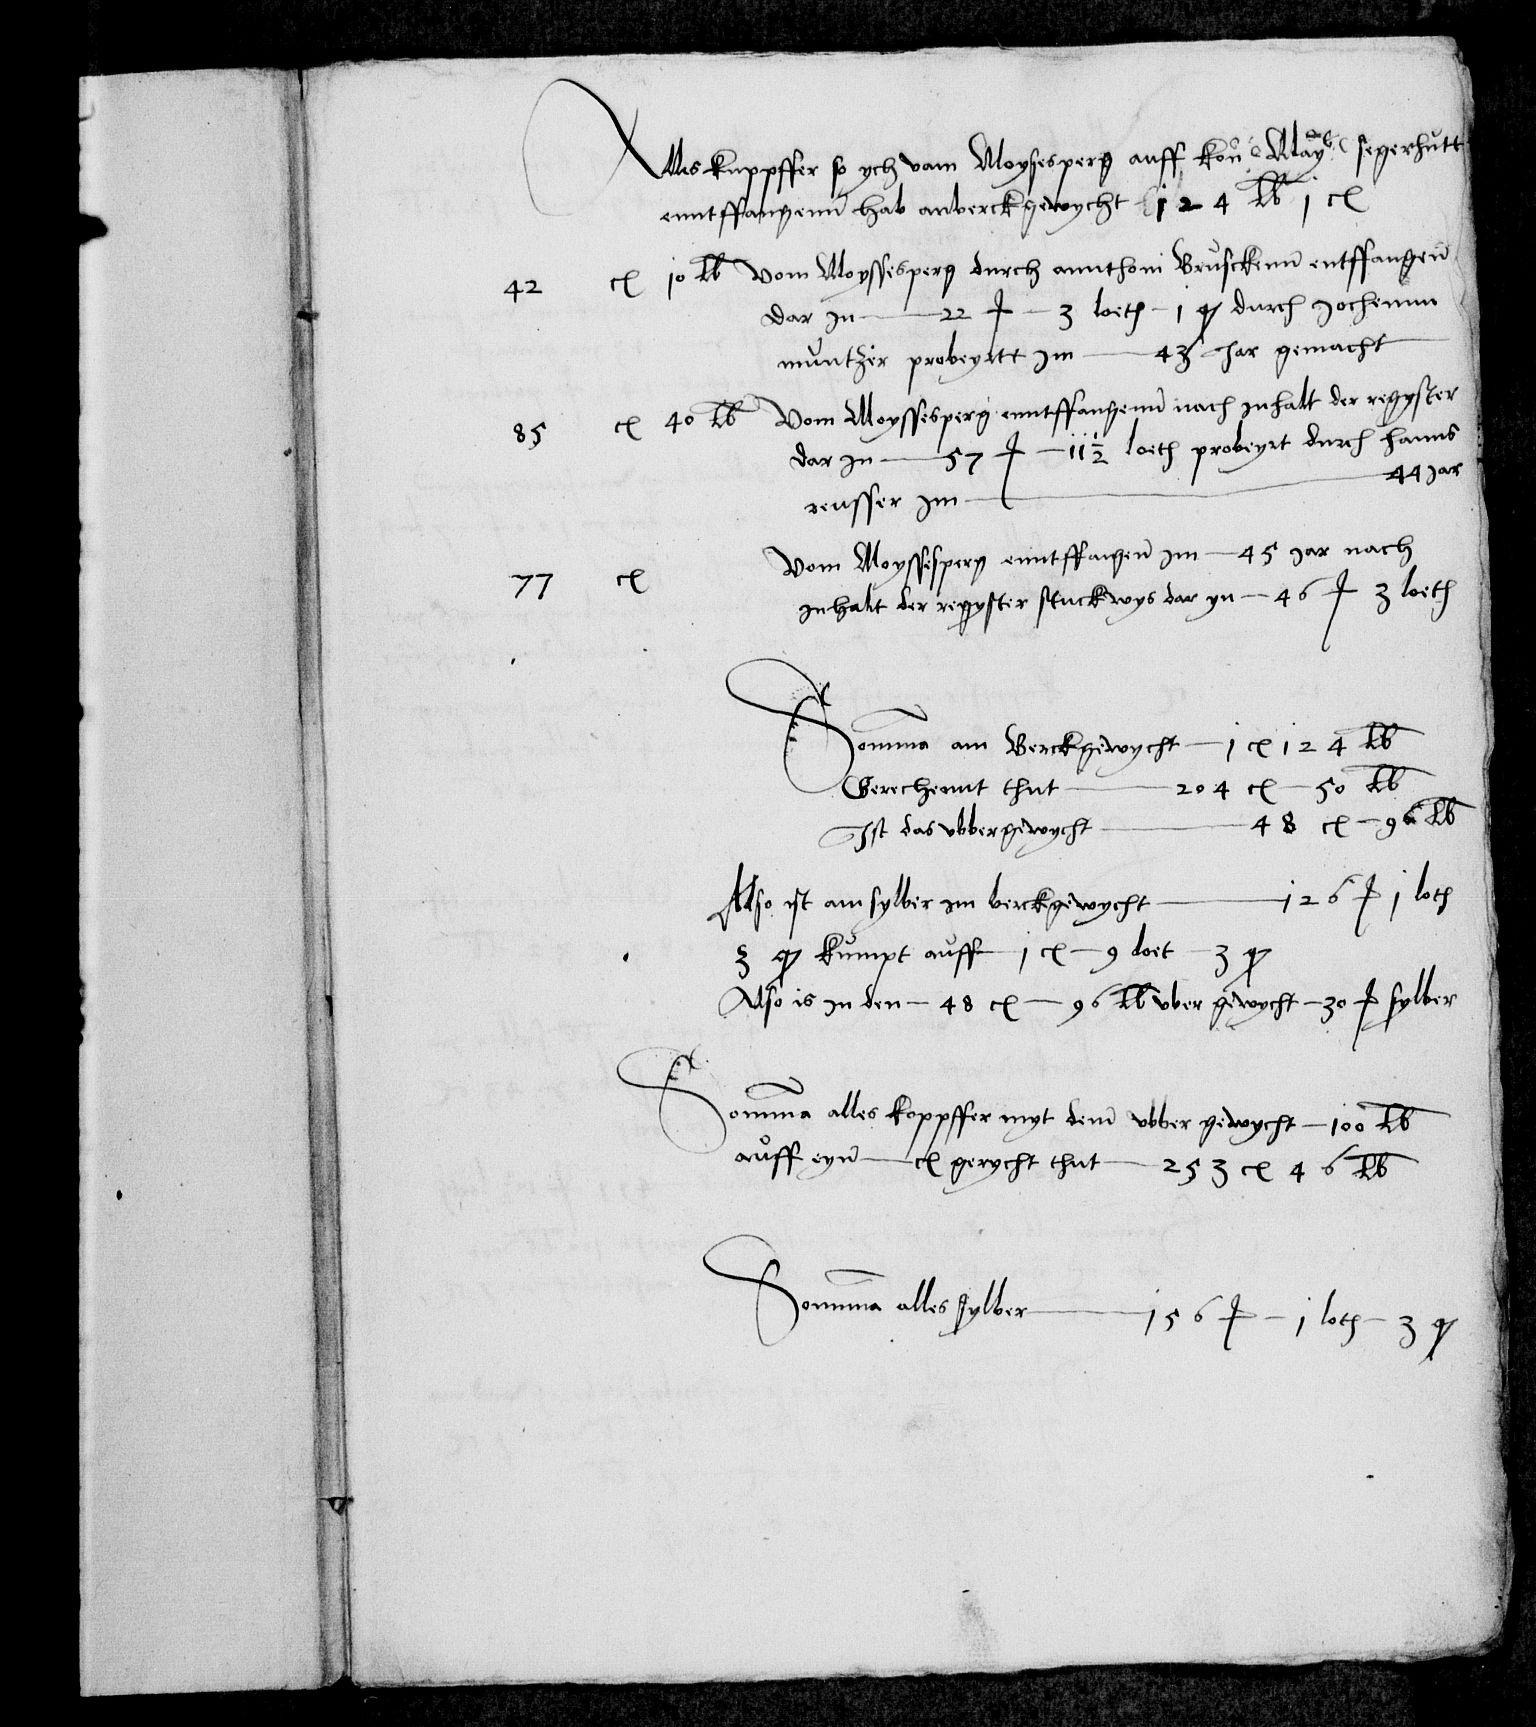 Alles kuppffer so ych vam Moysesperg auff kon: May: segerhutt
enntffangenn hab anberckgewycht 124 lb 1 ct
42 ct 10 lb Vom Moyssesperg durch annthoni Brusckenn entffangen
dar in — 22 — 3 loeth — 1 q durch Jochemm
muntzer probeyrtt im — 43 Jar gemacht
85 ct 40 lb Vom Moyssesperg enntffangenn nach inhalt der regyster
dar in — 57 — 11½ loeth probeyrt durch hanns
reusser im — 44 jar
77 ct Vom Moyssesperg enntffangen im — 45 jar nach
inhalt der regyster stuckwys dar yn — 46 3 loeth
Somma am Berckgewycht — 1 ct 124 lb
Gerechennt thut — 204 ct — 50 lb
Ist das ubbergewycht — 48 ct — 96 lb
Also ist am sylber im berckgewycht — 126 1 loth
3 q kumpt auff — 1 ct — 9 loet — 3 q
Also is in den — 48 ct — 96 lb uber gewycht — 30 sylber
Somma alles koppffer myt dem ubber gewycht — 100 lb
auff eyn — ct gerycht thut — 253 ct 46 lb
Somma alles sylber — 156 — 1 loth — 3 q